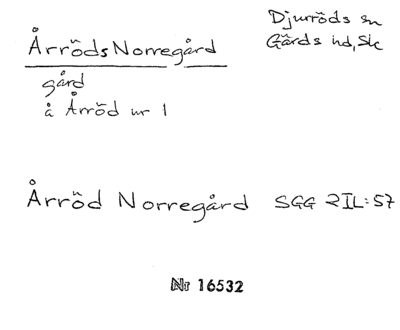 Årröds Norregård
Djurröds sn
Gärds hd, Sk
gård
å Årröd nr 1
Årröd Norregård SGG 2IL:57
Nr 16532